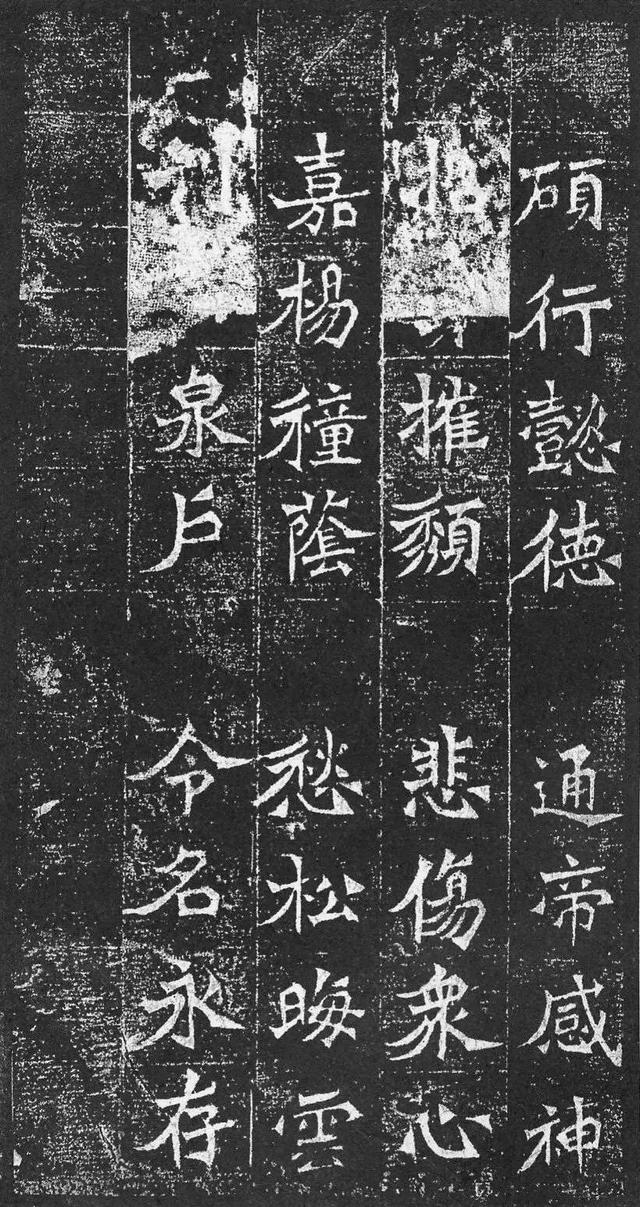 碩行懿德 通帝感神
摧 悲傷衆心
嘉楊穜蔭 愁松晦雲
泉戶 令名永存